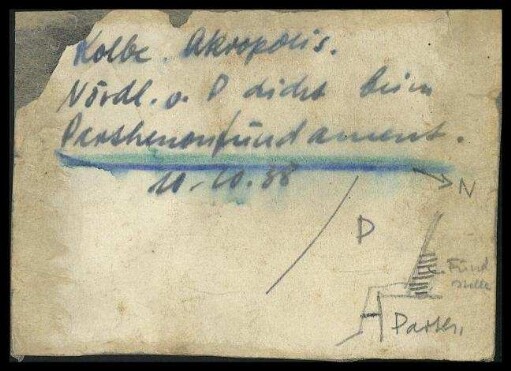 Kolbe. Akropolis.
Nördl. v. D dicht beim
Parthenonfundament.
10.10.38
N
D
Fund
stelle
Parthen.